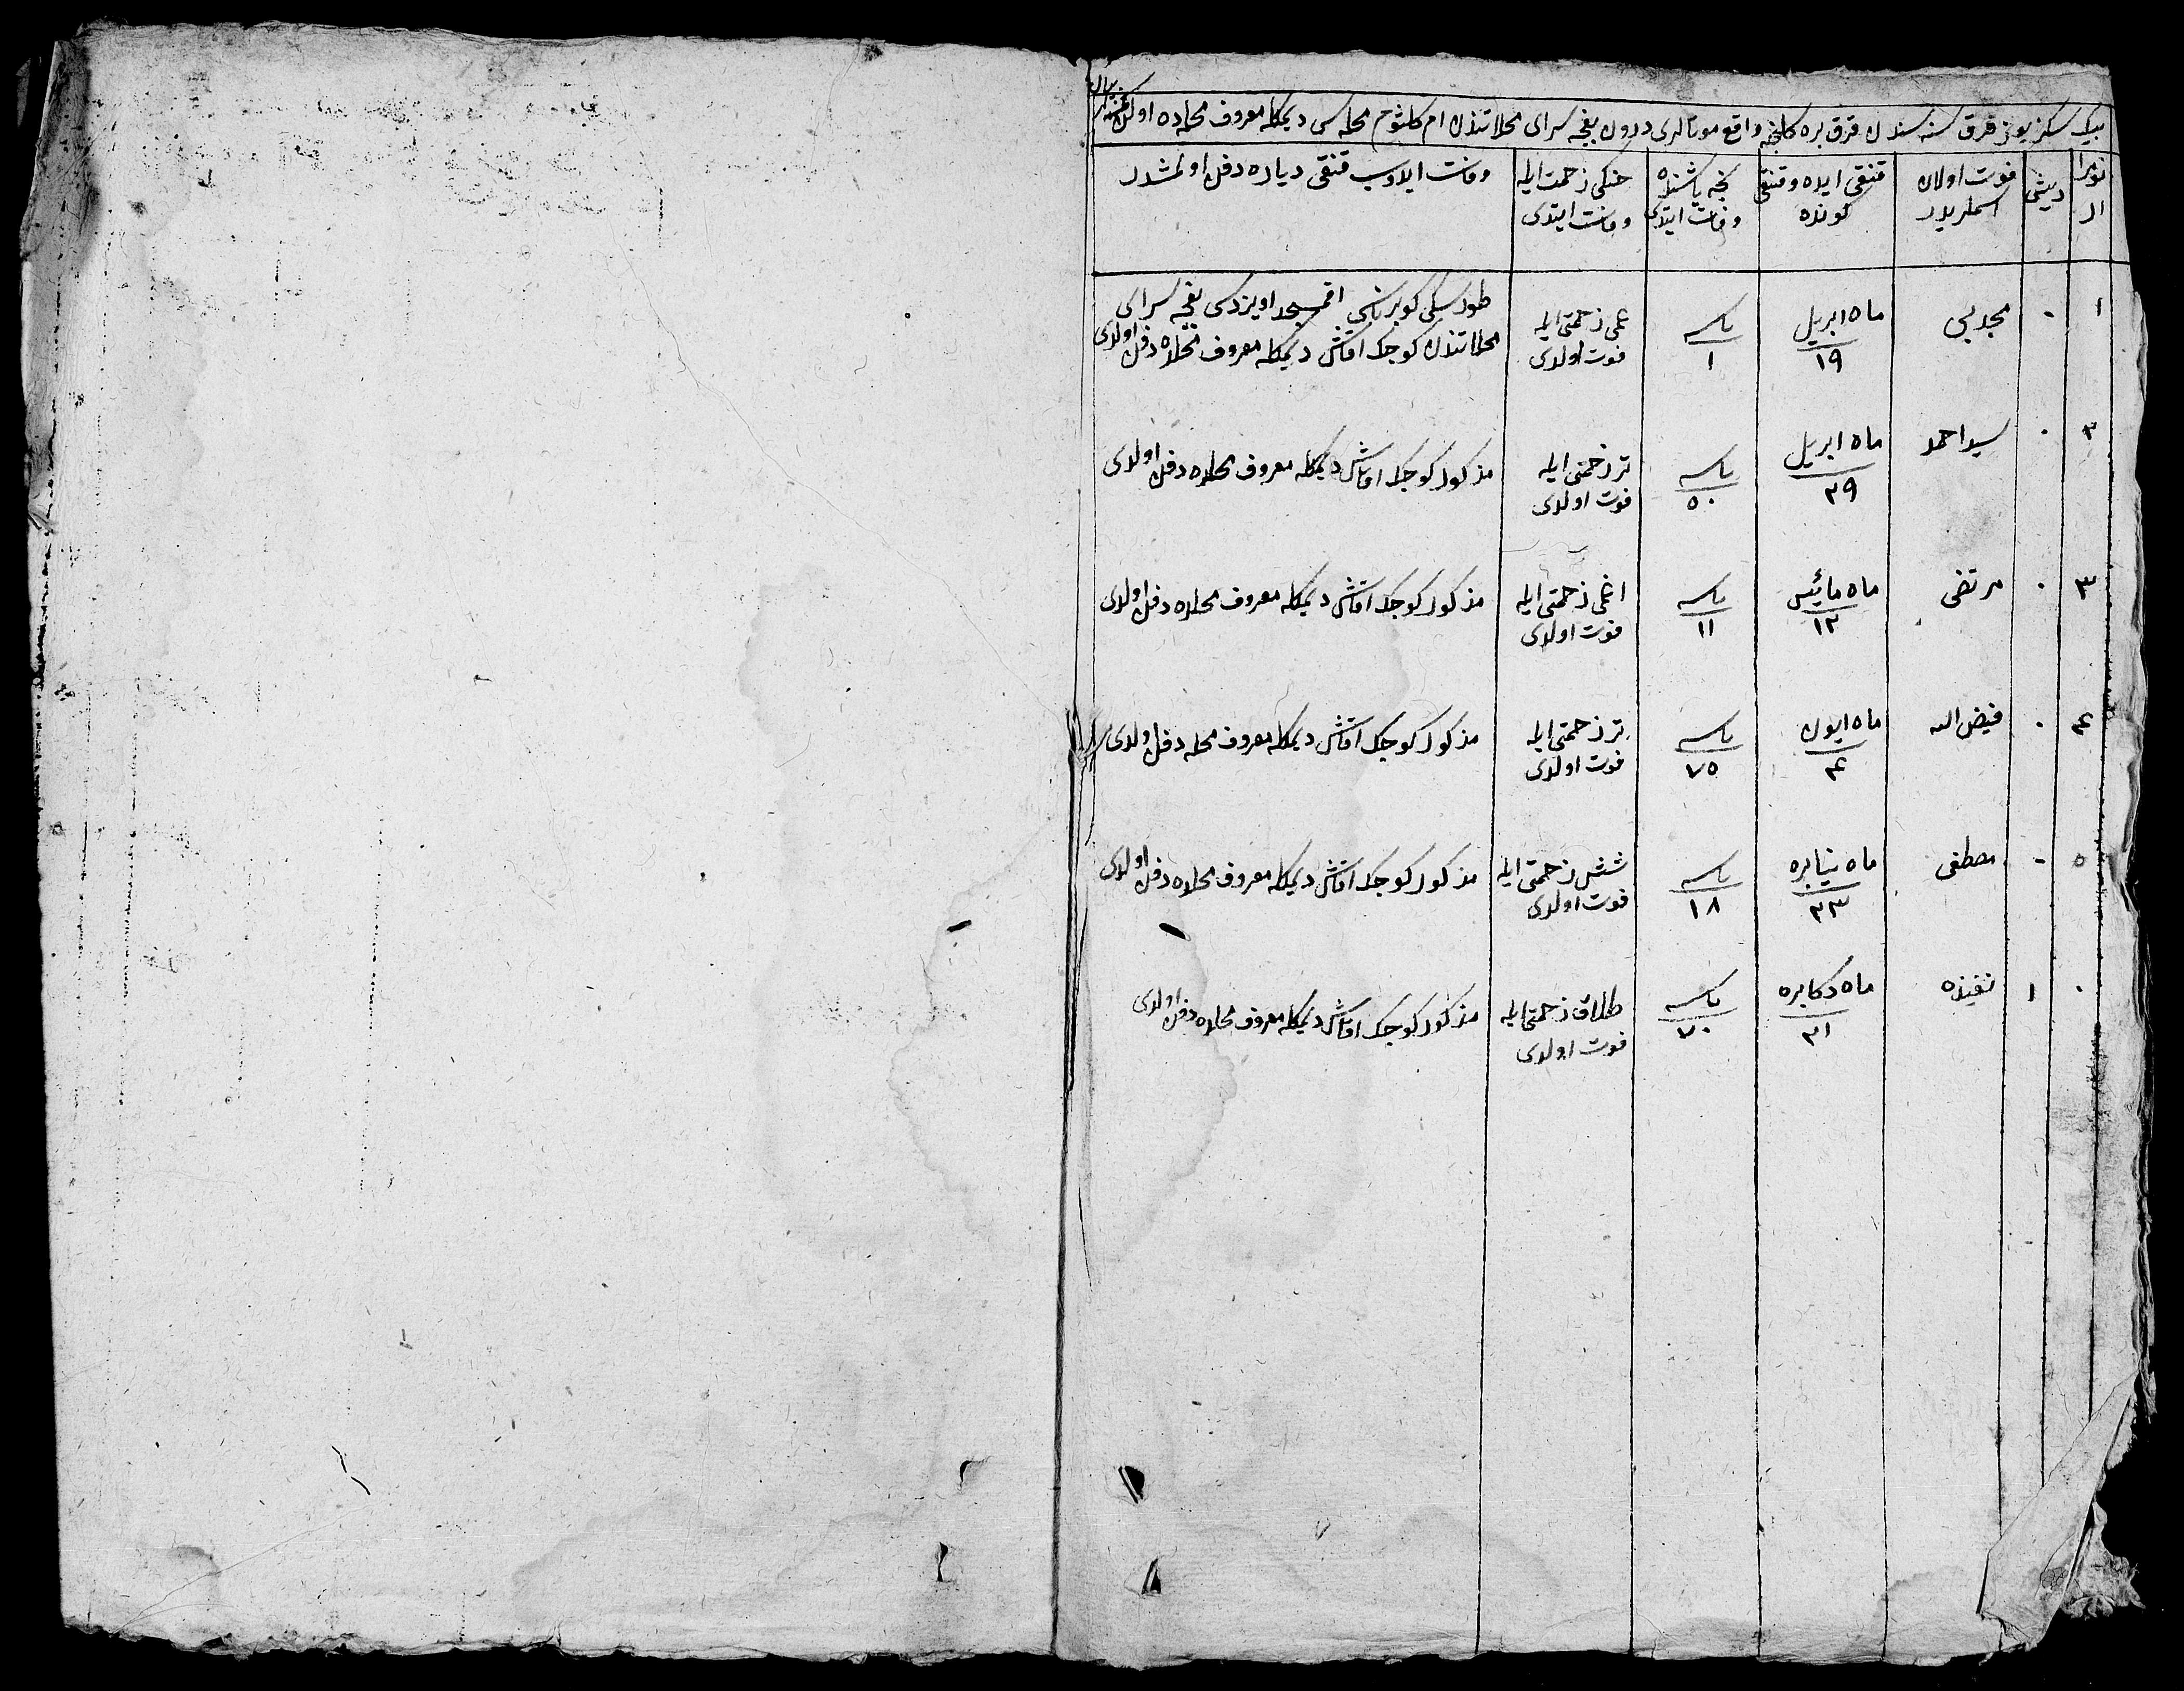 بیك سکز یوز قرق سنه سندن قرق بره کلنجه واقع موتالری درون بغچه سرای محلاتندن ام کلثوم محله سی دیمکله معروف محله ده اولان
نومرا ار
دیشی
فوت اولان اسملریدر
قنقی ایده و قنقی کونده
نچه یاشنده وفات ایتدی
خنکی زحمت ایله وفات ایتدی
وفات ایدوب قنقی دیارده دفن اولمشدر
١ ٠ مجدبی ماه ابریل ١٩ یاسه ١ زحمتی ایله فوت اولدی
کوبرناسی اقمسجد اویزدی بغچه سرای
محلاتندن کوجك اقاش دیمکله معروف محلده دفن اولدی
٢ ٠ سید احمد ماه ابریل ٢٩ یاسه ٥٠ تر زحمتی ایله فوت اولدی
مذکور کوجك اقاش دیمکله معروف محلده دفن اولدی
٣ ٠ مرتضی ماه مائیس ١٢ یاسه ١١ زحمتی ایله فوت اولدی
مذکور کوجك اقاش دیمکله معروف محلده دفن اولدی
٤ ٠ فیض الله ماه ایون ٤ یاسه ٧٥ تر زحمتی ایله فوت اولدی
مذکور کوجك اقاش دیمکله معروف محله دفن اولدی
٥ ٠ مصطفی ماه ینابره ٢٣ یاسه ١٨ شش زحمتی ایله فوت اولدی
مذکور کوجك اقاش دیمکله معروف محلده دفن اولدی
٠ ١ ماه دکابره ٢١ یاسه ٧٠ طلاق زحمتی ایله فوت اولدی
مذکور کوجك اقاش دیمکله معروف محلده دفن اولدی